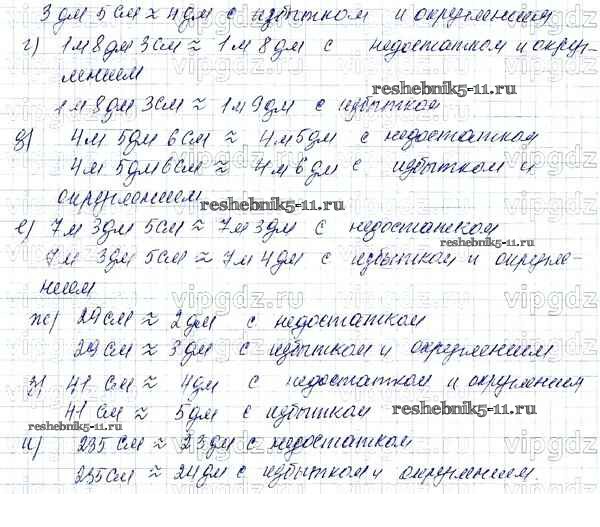 3 дм 5 см ≈ 4 дм с избытком и округлением
г) 1 м 8 дм 3 см ≈ 1 м 8 дм с недостатком и округ-
лением
reshebnik5-11.ru
1 м 8 дм 3 см ≈ 1 м 9 дм с избытком
д) 4 м 5 дм 6 см ≈ 4 м 5 дм с недостатком
vipgdz.ru
4 м 5 дм 6 см ≈ 4 м 6 дм с избытком и
округлением
reshebnik5-11.ru
е) 7 м 3 дм 5 см ≈ 7 м 3 дм с недостатком
reshebnik5-11.ru
7 м 3 дм 5 см ≈ 7 м 4 дм с избытком и округле-
нием
vipgdz.ru
ж) 29 см ≈ 2 дм с недостатком
29 см ≈ 3 дм с избытком и округлением
з) 41 см ≈ 4 дм с недостатком и округлением
41 см ≈ 5 дм с избытком
reshebnik5-11.ru
reshebnik5-11.ru
и) 235 см ≈ 23 дм с недостатком
235 см ≈ 24 дм с избытком и округлением.